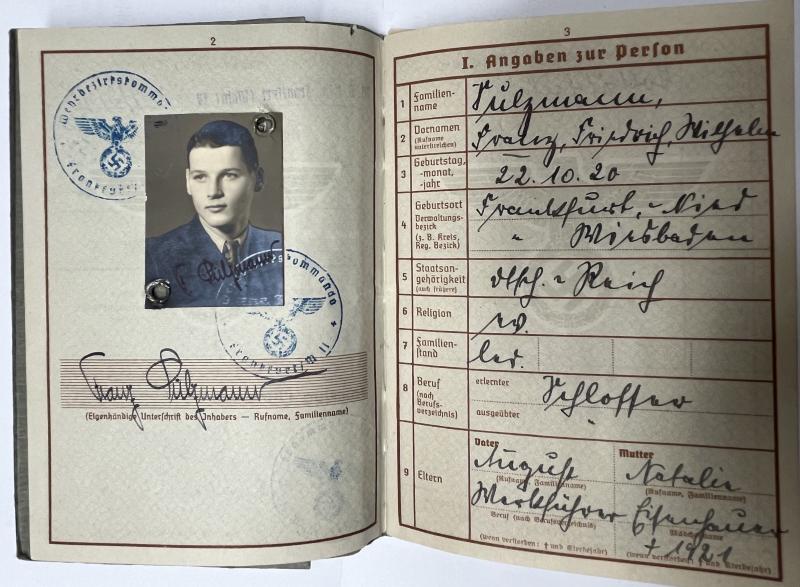 2
Wehrbezirkskommando
Frankfurt
F. Pülzmann
Wehrbezirkskommando
Frankfurt/M II
Franz Pülzmann
(Eigenhändige Unterschrift des Inhabers — Rufname, Familienname)
3
I. Angaben zur Person
1 Familienname Pülzmann,
2 Vornamen (Rufname unterstreichen) Franz, Friedrich, Wilhelm
3 Geburtstag, -monat, -jahr 22.10.20
4 Geburtsort Verwaltungsbezirk (z. B. Kreis, Reg. Bezirk) Frankfurt, - Nied
" Wiesbaden
5 Staatsangehörigkeit (auch frühere) dtsch. - Reich
6 Religion ev.
7 Familienstand led.
8 Beruf (nach Berufsverzeichnis) erlernter Schlosser
ausgeübter
9 Eltern
Vater Mutter
August Natalie
(Rufname, Familienname) (Rufname, Familienname)
Werkführer Eisenhauer
Beruf (nach Berufsverzeichnis) Mädchenname
† 1921
(wenn verstorben: † und Sterbejahr) (wenn verstorben: † und Sterbejahr)